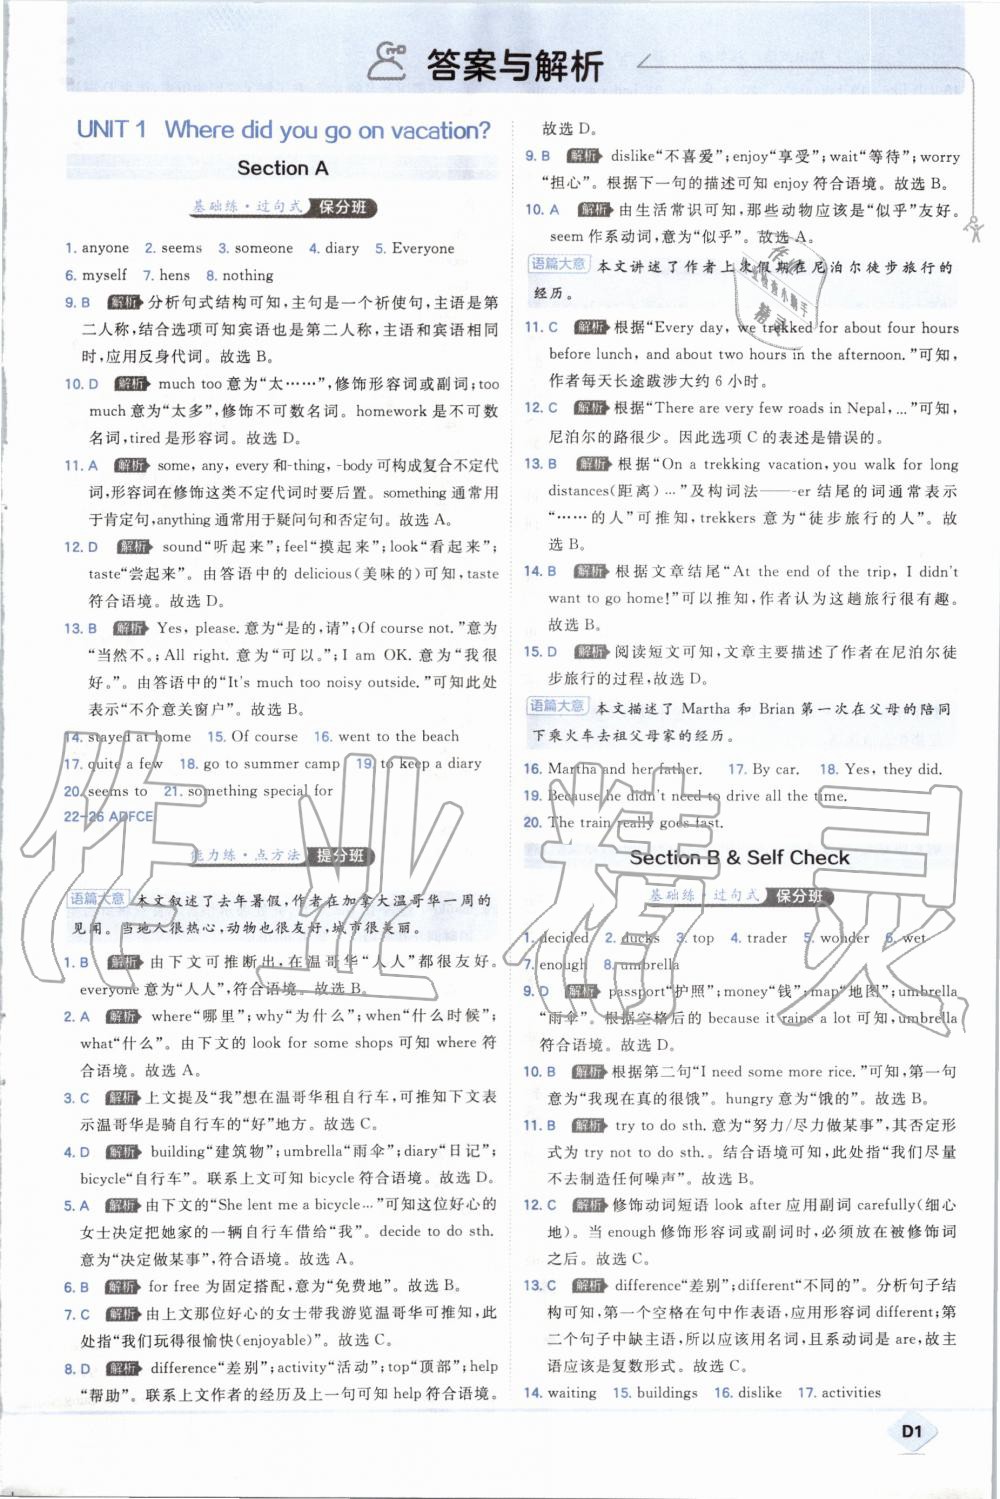 答案与解析
UNIT 1 Where did you go on vacation?
Section A
基础练·过句式 保分班
1. anyone 2. seems 3. someone 4. diary 5. Everyone
6. myself 7. hens 8. nothing
9. B 解析 分析句式结构可知,主句是一个祈使句,主语是第
二人称,结合选项可知宾语也是第二人称,主语和宾语相同
时,应用反身代词。故选 B。
10. D 解析 much too 意为“太……”,修饰形容词或副词;too
much 意为“太多”,修饰不可数名词。homework 是不可数
名词,tired 是形容词。故选 D。
11. A 解析 some, any, every 和-thing, -body 可构成复合不定代
词,形容词在修饰这类不定代词时要后置。something 通常用
于肯定句,anything 通常用于疑问句和否定句。故选 A。
12. D 解析 sound“听起来”;feel“摸起来”;look“看起来”;
taste“尝起来”。由答语中的 delicious(美味的)可知,taste
符合语境。故选 D。
13. B 解析 Yes, please. 意为“是的,请”;Of course not.”意为
“当然不。;All right. 意为“可以。”;I am OK. 意为“我很
好。”。由答语中的“It's much too noisy outside.”可知此处
表示“不介意关窗户”。故选 B。
14. stayed at home 15. Of course 16. went to the beach
17. quite a few 18. go to summer camp 19. to keep a diary
20. seems to 21. something special for
22-26 ADFCE
能力练·点方法 提分班
语篇大意 本文叙述了去年暑假,作者在加拿大温哥华一周的
见闻。当地人很热心,动物也很友好,城市很美丽。
1. B 解析 由下文可推断出,在温哥华“人人”都很友好。
everyone 意为“人人”,符合语境。故选 B。
2. A 解析 where“哪里”;why“为什么”;when“什么时候”;
what“什么”。由下文的 look for some shops 可知 where 符
合语境。故选 A。
3. C 解析 上文提及“我”想在温哥华租自行车,可推知下文表
示温哥华是骑自行车的“好”地方。故选 C。
4. D 解析 building“建筑物”;umbrella“雨伞”;diary“日记”;
bicycle“自行车”。联系上文可知 bicycle 符合语境。故选 D。
5. A 解析 由下文的“She lent me a bicycle...”可知这位好心的
女士决定把她家的一辆自行车借给“我”。decide to do sth.
意为“决定做某事”,符合语境。故选 A。
6. B 解析 for free 为固定搭配,意为“免费地”。故选 B。
7. C 解析 由上文那位好心的女士带我游览温哥华可推知,此
处指“我们玩得很愉快(enjoyable)”。故选 C。
8. D 解析 difference“差别”;activity“活动”;top“顶部”;help
“帮助”。联系上文作者的经历及上一句可知 help 符合语境。
故选 D。
9. B 解析 dislike“不喜爱”;enjoy“享受”;wait“等待”;worry
“担心”。根据下一句的描述可知 enjoy 符合语境。故选 B。
10. A 解析 由生活常识可知,那些动物应该是“似乎”友好。
seem 作系动词,意为“似乎”。故选 A。
语篇大意 本文讲述了作者上次假期在尼泊尔徒步旅行的
经历。
11. C 解析 根据“Every day, we trekked for about four hours
before lunch, and about two hours in the afternoon.”可知,
作者每天长途跋涉大约 6 小时。
12. C 解析 根据“There are very few roads in Nepal, ...”可知,
尼泊尔的路很少。因此选项 C 的表述是错误的。
13. B 解析 根据“On a trekking vacation, you walk for long
distances(距离) ...”及构词法——-er 结尾的词通常表示
“……的人”可推知,trekkers 意为“徒步旅行的人”。故
选 B。
14. B 解析 根据文章结尾“At the end of the trip, I didn't
want to go home!”可以推知,作者认为这趟旅行很有趣。
故选 B。
15. D 解析 阅读短文可知,文章主要描述了作者在尼泊尔徒
步旅行的过程,故选 D。
语篇大意 本文描述了 Martha 和 Brian 第一次在父母的陪同
下乘火车去祖父母家的经历。
16. Martha and her father. 17. By car. 18. Yes, they did.
19. Because he didn't need to drive all the time.
20. The train really goes fast.
Section B & Self Check
基础练·过句式 保分班
1. decided 2. ducks 3. top 4. trader 5. wonder 6. wet
7. enough 8. umbrella
9. D 解析 passport“护照”;money“钱”;map“地图”;umbrella
“雨伞”。根据空格后的 because it rains a lot 可知,umbrella
符合语境。故选 D。
10. B 解析 根据第二句“I need some more rice.”可知,第一句
意为“我现在真的很饿”。hungry 意为“饿的”。故选 B。
11. B 解析 try to do sth. 意为“努力/尽力做某事”,其否定形
式为 try not to do sth.。结合语境可知,此处指“我们尽量
不去制造任何噪声”。故选 B。
12. C 解析 修饰动词短语 look after 应用副词 carefully(细心
地)。当 enough 修饰形容词或副词时,必须放在被修饰词
之后。故选 C。
13. C 解析 difference“差别”;different“不同的”。分析句子结
构可知,第一个空格在句中作表语,应用形容词 different;第
二个句子中缺主语,所以应该用名词,且系动词是 are,故主
语应该是复数形式。故选 C。
14. waiting 15. buildings 16. dislike 17. activities
D1
作业精灵